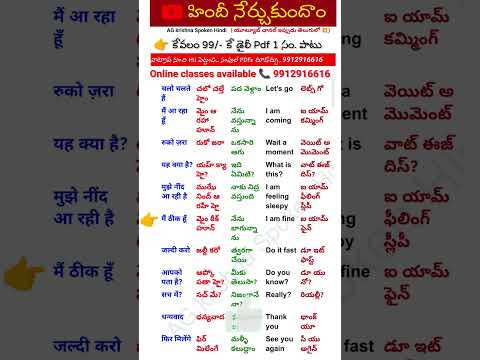 హిందీ నేర్చుకుందాం
AG krishna Spoken Hindi | (యూట్యూబ్ ఛానల్ ఇప్పుడు తెలుగులో)
👉 కేవలం 99/- కే డైలీ Pdf 1 సం. పాటు
9912916616
Online classes available 📞 9912916616
चलो चलते हैं చలో చల్తే హైం పద వెళ్దాం Let's go లెట్స్ గో
मैं आ रहा हूँ మైం ఆ రహా హూన్ నేను వస్తున్నాను I am coming ఐ యామ్ కమ్మింగ్
रुको ज़रा రుకో జరా ఒకసారి ఆగు Wait a moment వెయిట్ అ మొమెంట్
यह क्या है? యహ్ క్యా హై? ఇది ఏమిటి? What is this? వాట్ ఈజ్ దిస్?
मुझे नींद आ रही है ముఝే నీంద్ ఆ రహీ హై నాకు నిద్ర వస్తుంది I am feeling sleepy ఐ యామ్ ఫీలింగ్ స్లీపీ
👉 मैं ठीक हूँ మైం ఠీక్ హూన్ నేను బాగున్నాను I am fine ఐ యామ్ ఫైన్
जल्दी करो జల్దీ కరో త్వరగా చేయి Do it fast డూ ఇట్ ఫాస్ట్
आपको पता है? ఆప్కో పతా హై? మీకు తెలుసా? Do you know? డూ యు నో?
सच में? సచ్ మే? నిజంగానేనా? Really? రియల్లీ?
धन्यवाद ధన్యవాద Thank you థాంక్ యూ
फिर मिलेंगे ఫిర్ మిలేంగే మళ్ళీ కలుద్దాం See you again సీ యు అగైన్